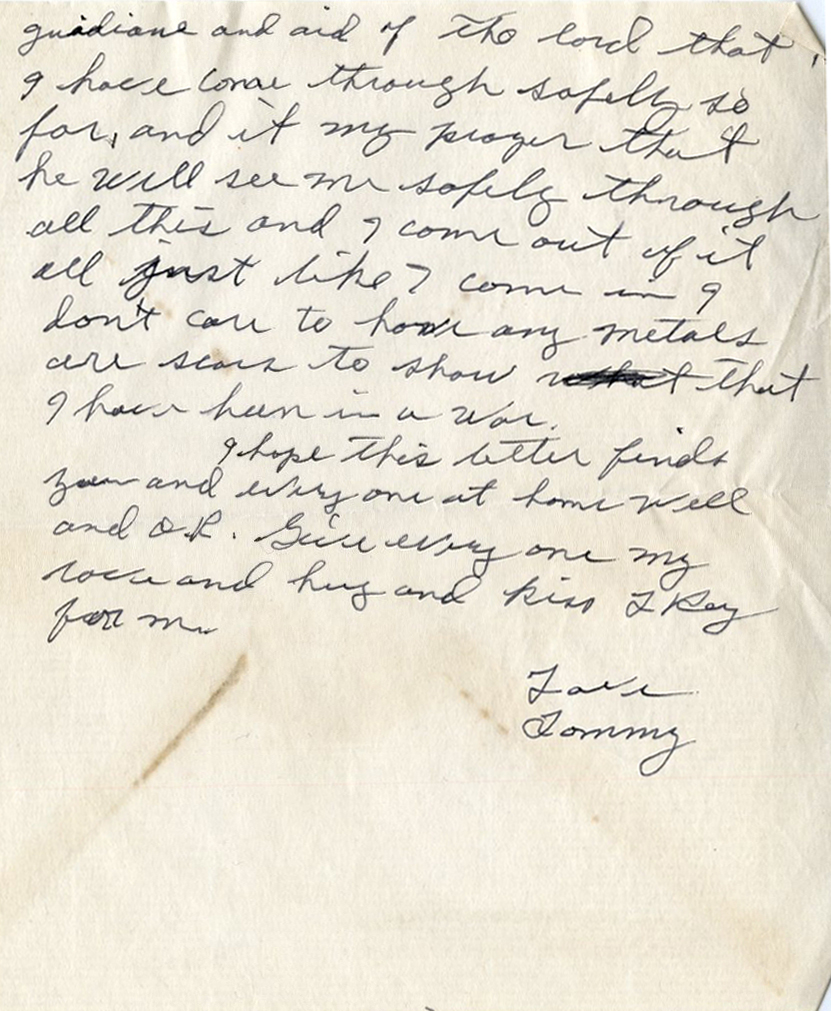 guidiane and aid of the lord that
I have come through safelly so
far, and it my prayer that
he will see me safely through
all this and I come out of it
all just like I come in I
don't care to have any metals
are scars to show that
I have been in a war.
I hope this letter finds
you and every one at home well
and O.K. Give every one my
love and hug and kiss
for me
Love
Tommy